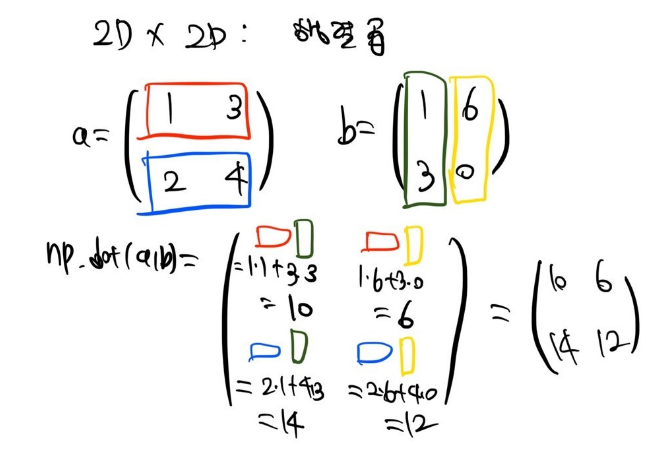 2D × 2D : 행렬곱
a= ( 1 3
2 4 )
b= ( 1 6
3 0 )
np.dot(a,b)=
=1·1+3·3 1·6+3·0
=10 =6
=2·1+4·3 =2·6+4·0
=14 =12
= ( 10 6
14 12 )